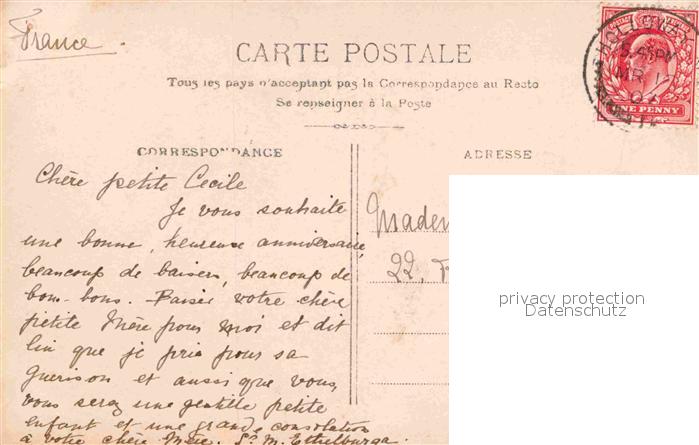 France
CARTE POSTALE
Tous les pays n'acceptant pas la Correspondance au Recto
Se renseigner à la Poste
HOLLOWAY
5.45PM
MR
ONE PENNY
CORRESPONDANCE
ADRESSE
Chère petite Cecile
Je vous souhaite
une bonne, heureuse anniversaire
beaucoup de baisers, beaucoup de
bom-bons. Baisez votre chère
petite Mère pour moi et dit
lui que je prie pour sa
guerison et aussi que vous,
vous serez une gentille petite
enfant et une grande consolation
à votre chère Mère. Sr. M. Ethelburga.
Madem
22,
privacy protection
Datenschutz